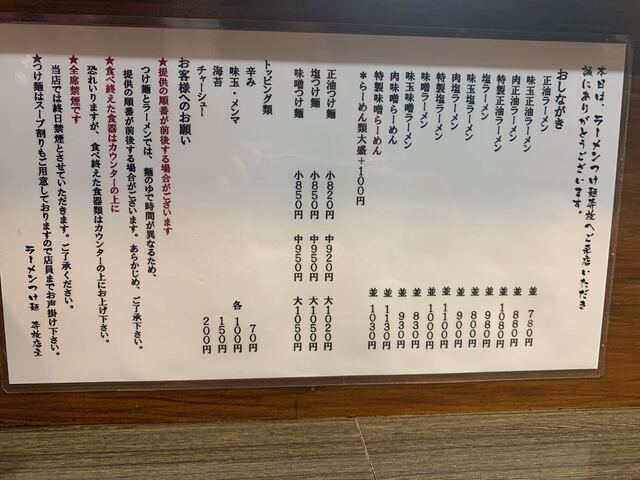 本日は、ラーメンつけ麺
誠にありがとうございます。
おしながき
正油ラーメン 並 780円
味玉正油ラーメン 並 880円
肉正油ラーメン
特製正油ラーメン 並 1080円
塩ラーメン
味玉塩ラーメン
肉塩ラーメン
特製塩ラーメン
味噌ラーメン 並 830円
味玉味噌ラーメン 並 930円
肉味噌らーめん
特製味噌らーめん
＊らーめん類大盛＋100円
正油つけ麺 小820円 中920円 大1020円
塩つけ麺 小850円 中950円 大1050円
味噌つけ麺 小850円 中950円 大1050円
トッピング類
辛み 70円
味玉・メンマ 各100円
海苔 150円
チャーシュー 200円
お客様へのお願い
★提供の順番が前後する場合がございます
つけ麺とラーメンでは、麺のゆで時間が異なるため、
提供の順番が前後する場合がございます。あらかじめ、ご了承下さい。
★食べ終えた食器はカウンターの上に
恐れいりますが、食べ終えた食器類はカウンターの上にお上げ下さい。
★全席禁煙です
当店では終日禁煙とさせていただきます。ご了承ください。
★つけ麺はスープ割りもご用意しておりますので店員までお声掛け下さい。
ラーメンつけ麺